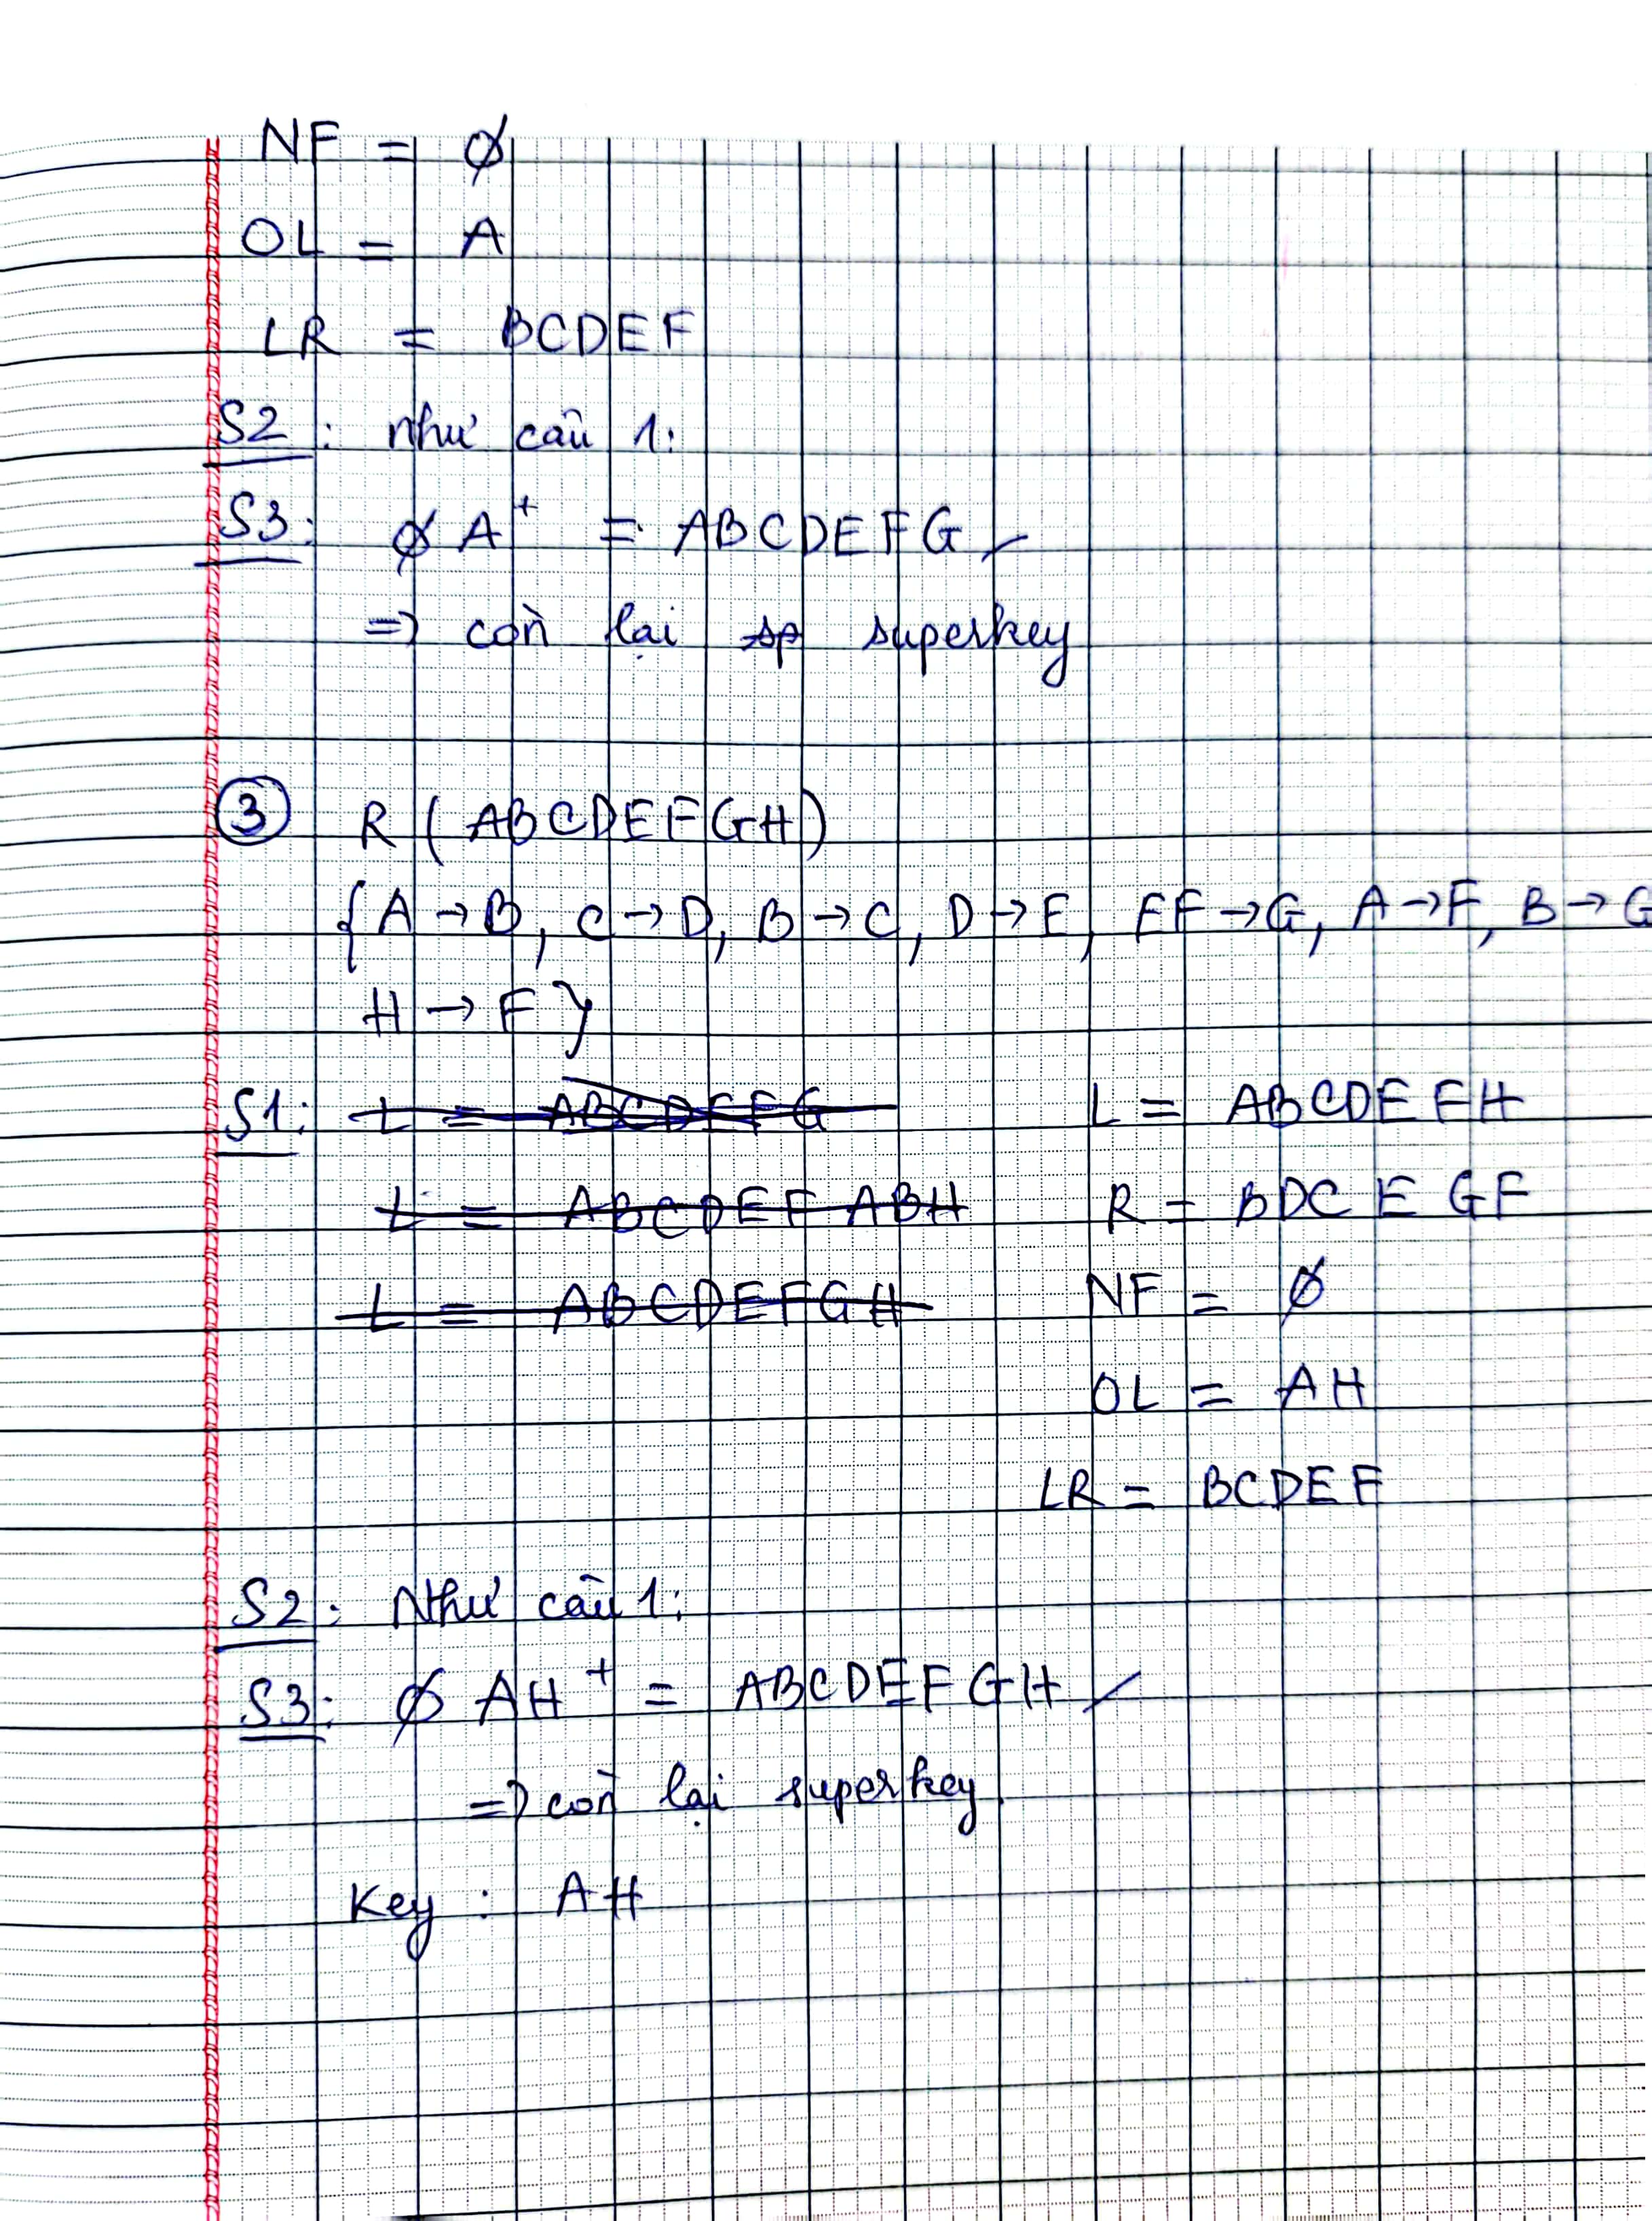 NF = ∅
OL = A
LR = BCDEF
S2: như câu 1:
S3: ∅ A⁺ = ABCDEFG
=> còn lại superkey
③ R (ABCDEFGH)
{A → B, C → D, B → C, D → E, EF → G, A → F, B → G
H → F}
S1: L = ABCDEFG L = ABCDEFH
L = ABCDEF ABH R = BDC E GF
L = ABCDEFGH NF = ∅
OL = AH
LR = BCDEF
S2: Như câu 1:
S3: ∅ AH⁺ = ABCDEFGH
=> còn lại superkey
Key : AH